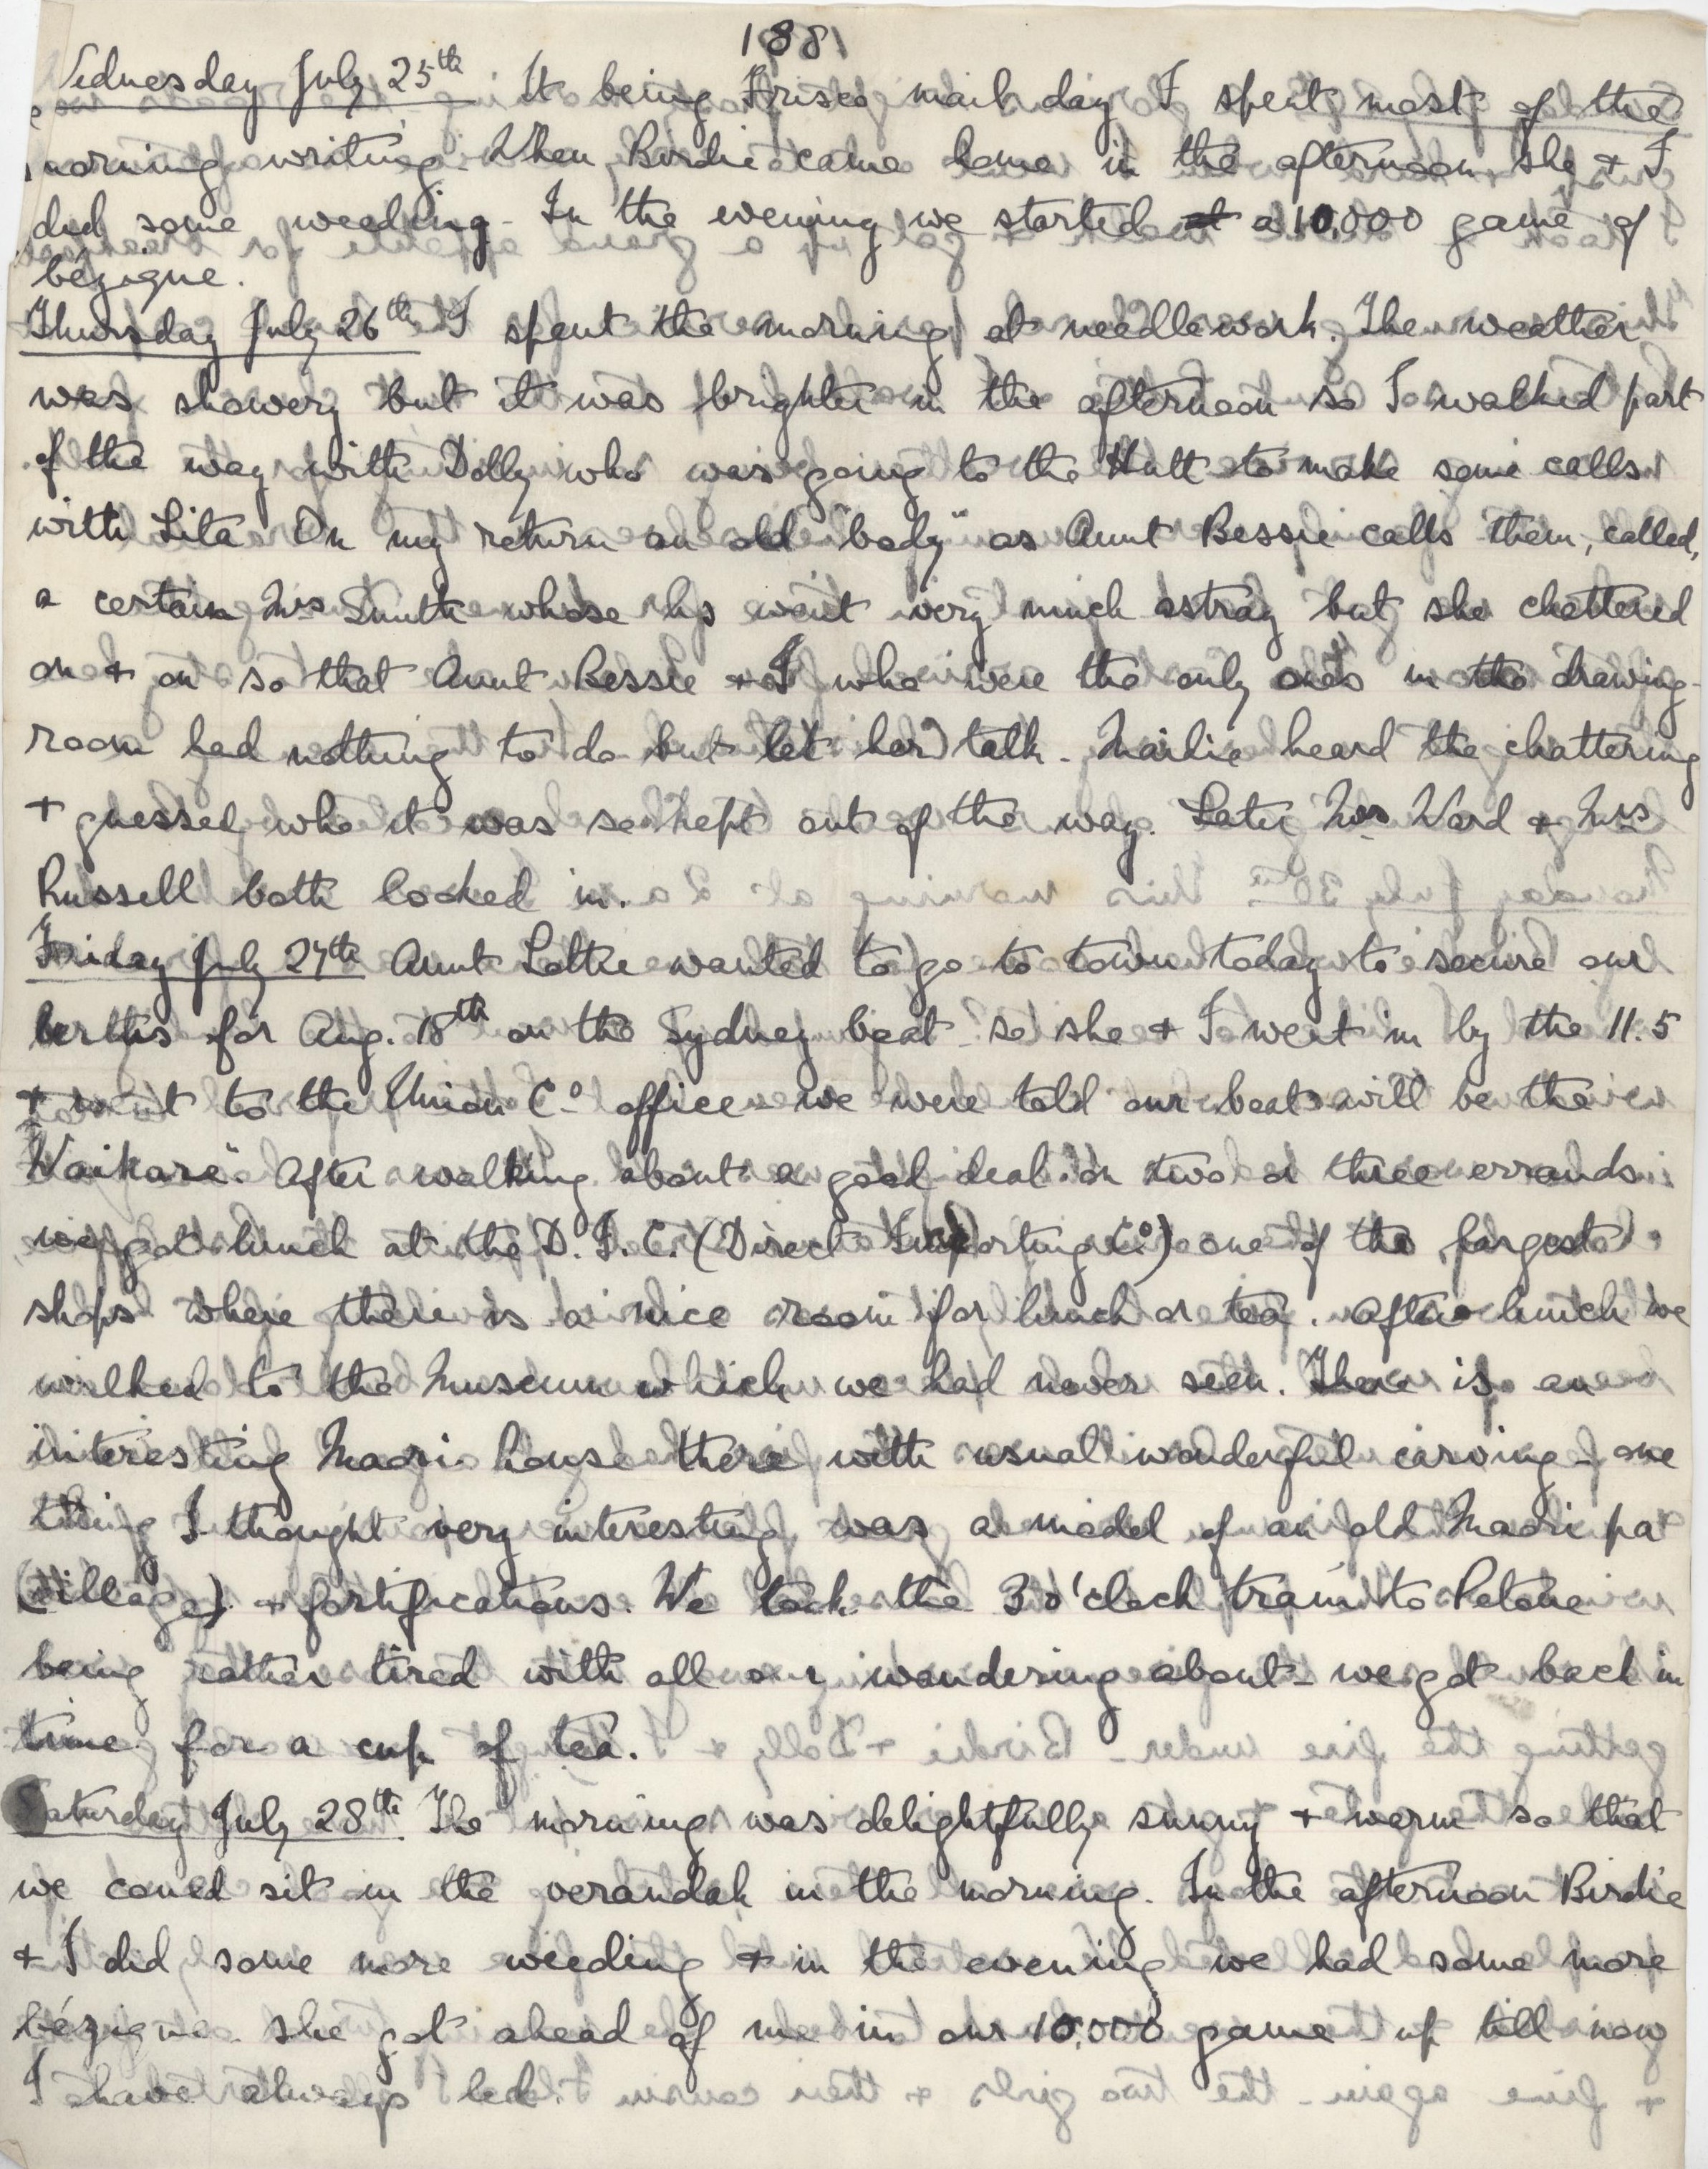 188
Wednesday July 25th It being Frisco mail day I spent most of the
morning writing. When Birdie came home in the afternoon she & I
did some weeding - In the evening we started a 10,000 game of
bézique.
Thursday July 26th I spent the morning at needlework. The weather
was showery but it was brighter in the afternoon so I walked part
of the way with Dolly who was going to the Hutt to make some calls
with Lita On my return an old "body" as Aunt Bessie calls them, called,
a certain Mrs Smith whose hs went very much astray but she chattered
on & on so that Aunt Bessie & I who were the only ones in the drawing-
room had nothing to do but let her talk - Mailie heard the chattering
& guessed who it was so kept out of the way. Later Mrs Ward & Mrs
Russell both looked in.
Friday July 27th Aunt Lottie wanted to go to town today to secure our
berths for Aug. 18th on the Sydney boat - so she & I went in by the 11.5
& went to the Union Co. office - we were told our boat will be the
Waikare". After walking about a good deal on two or three errands
we got lunch at the D. I. C. (Direct Importing Co) one of the largest
shops where there is a nice room for lunch or tea. After lunch we
walked to the Museum which we had never seen. There is an
interesting Maori house there with usual wonderful carving - one
thing I thought very interesting was a model of an old Maori pa
(village) & fortifications. We took the 3 o'clock train to Petone
being rather tired with all our wandering about - we got back in
time for a cup of tea.
Saturday July 28th The morning was delightfully sunny & warm so that
we could sit in the verandah in the morning. In the afternoon Birdie
& I did some more weeding & in the evening we had some more
bézique - she got ahead of me in our 10,000 game up till now
I have always led.